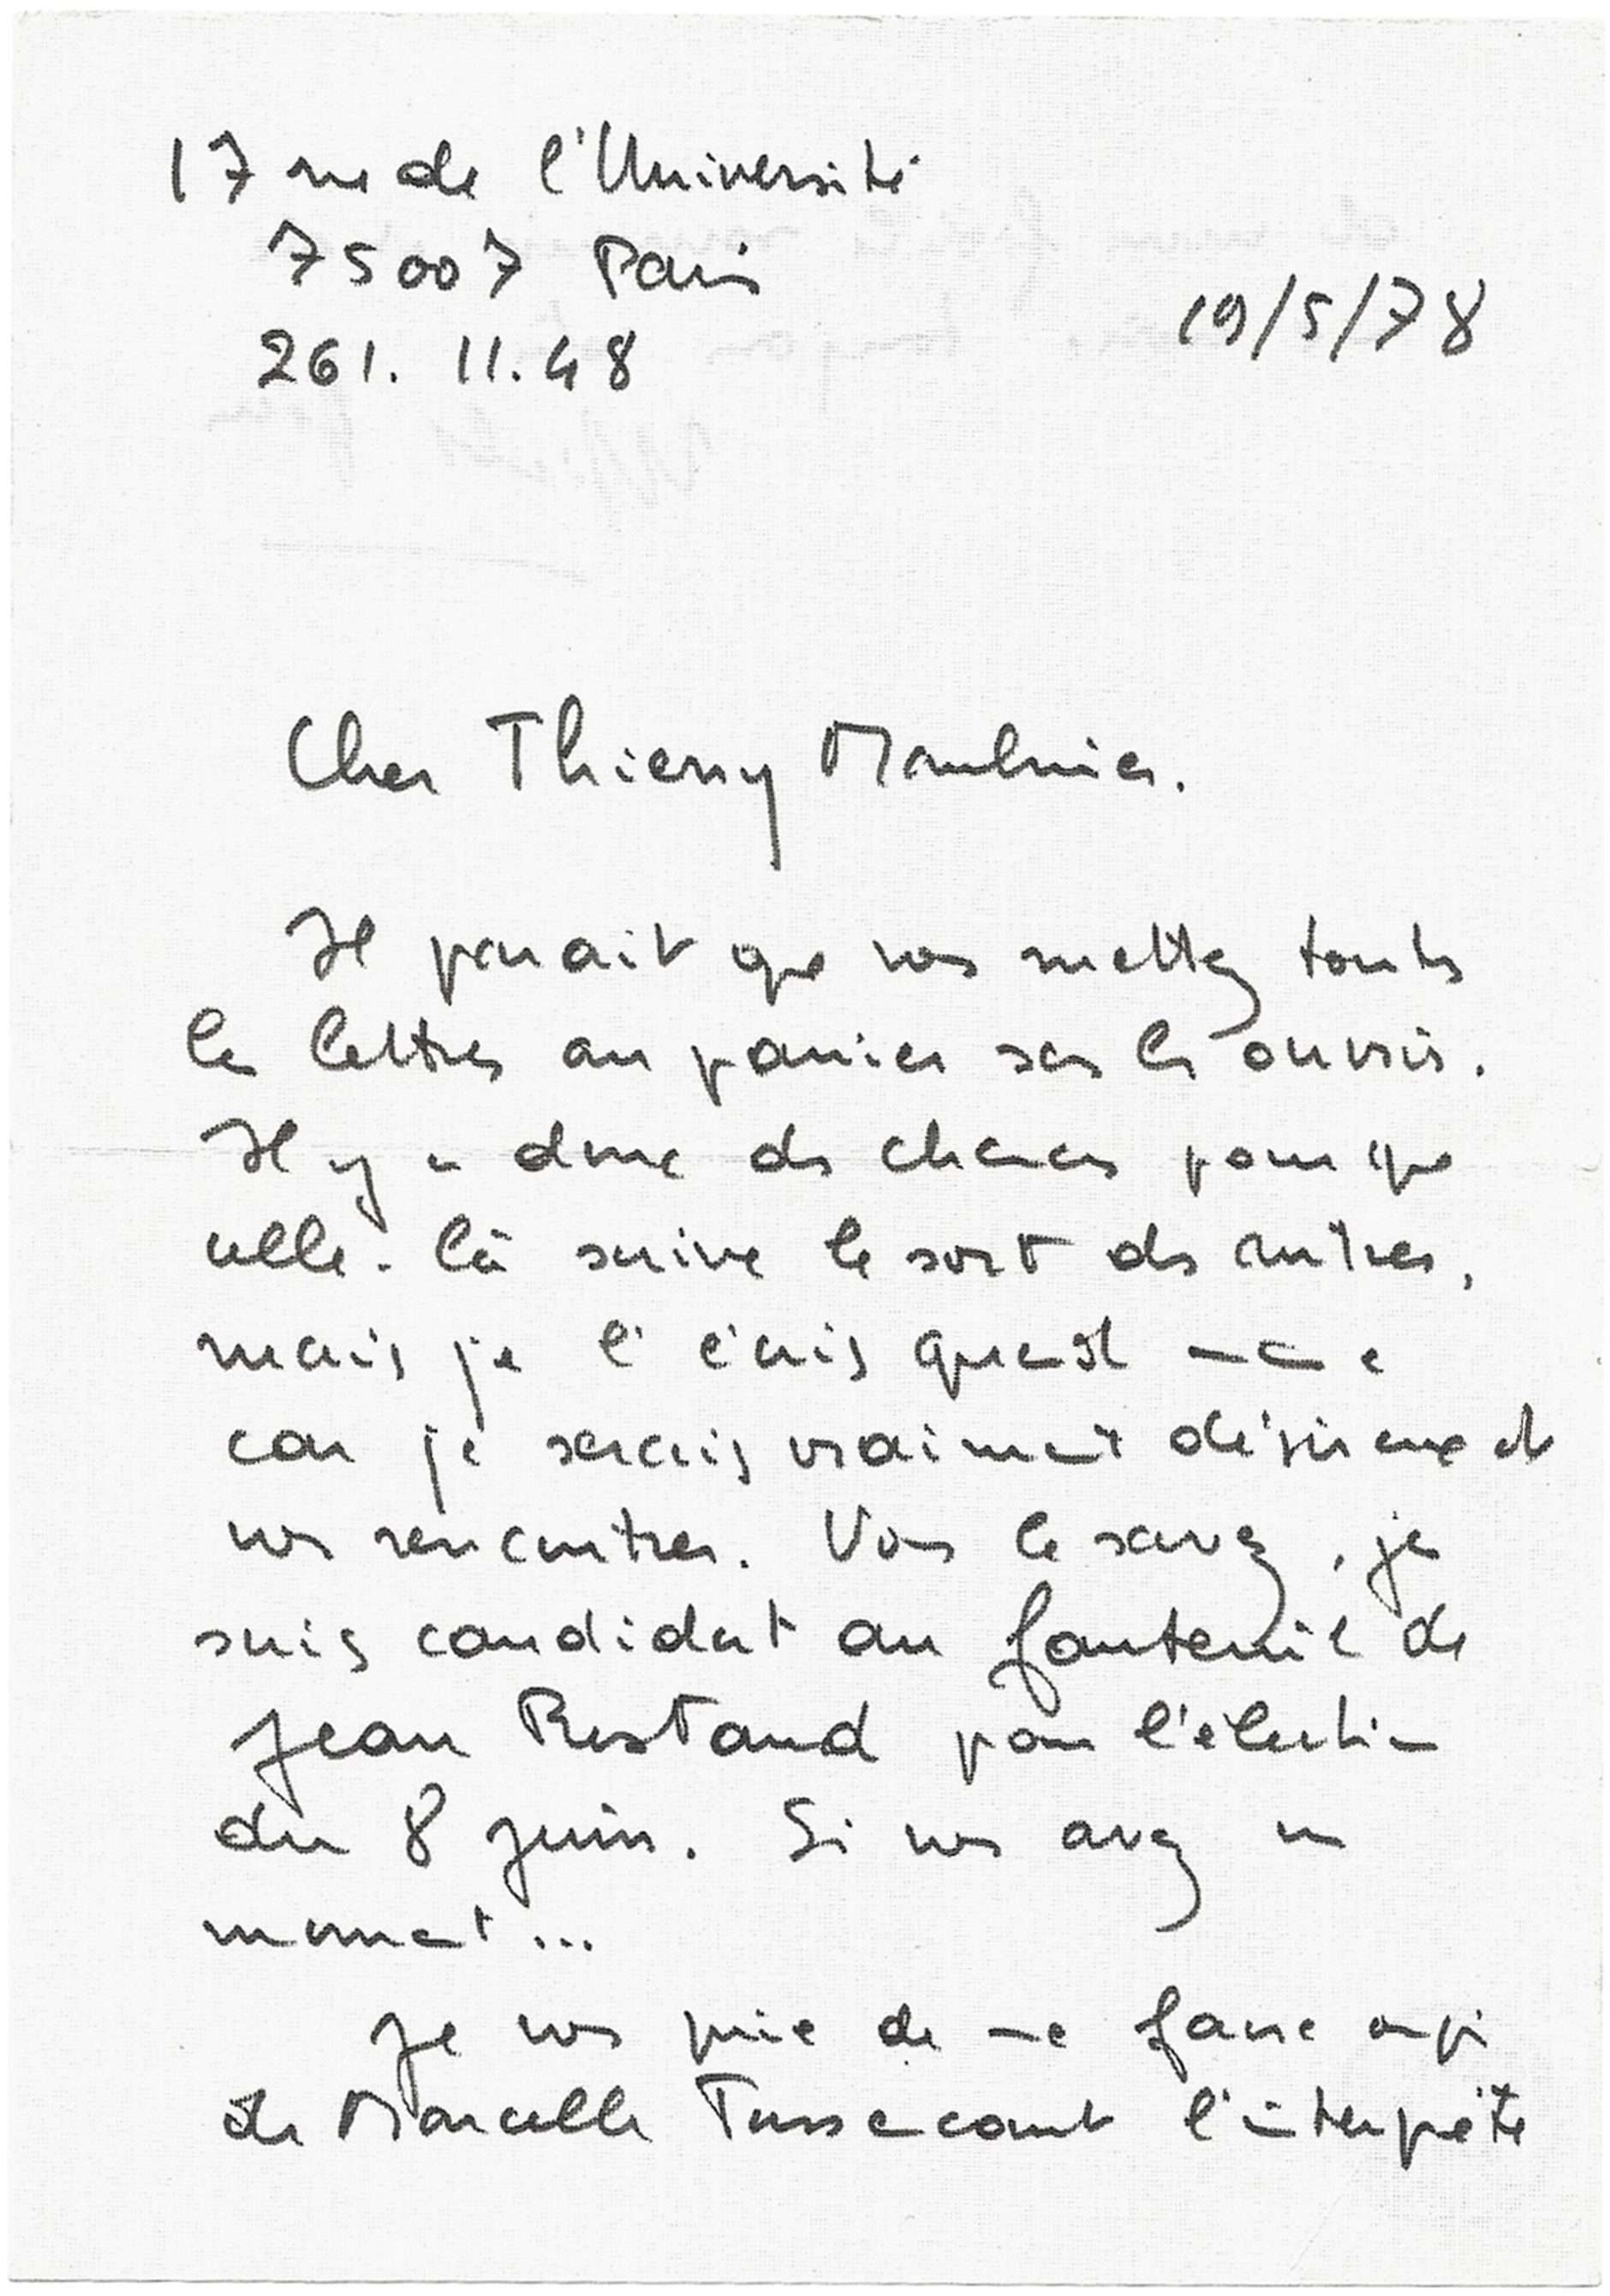 17 rue de l'Université
75007 Paris
261.11.48
19/5/78
Cher Thierry Maulnier.
Il parait que vous mettez toutes
les lettres au panier sans les ouvrir.
Il y a donc des chances pour que
celle-là suive le sort des autres,
mais je l'écris quand même
car je serais vraiment désireux de
vous rencontrer. Vous le savez, je
suis candidat au fauteuil de
Jean Rostand pour l'élection
du 8 juin. Si vous avez un
moment...
Je vous prie de me faire aussi
de Marcelle Tassencourt l'interprète